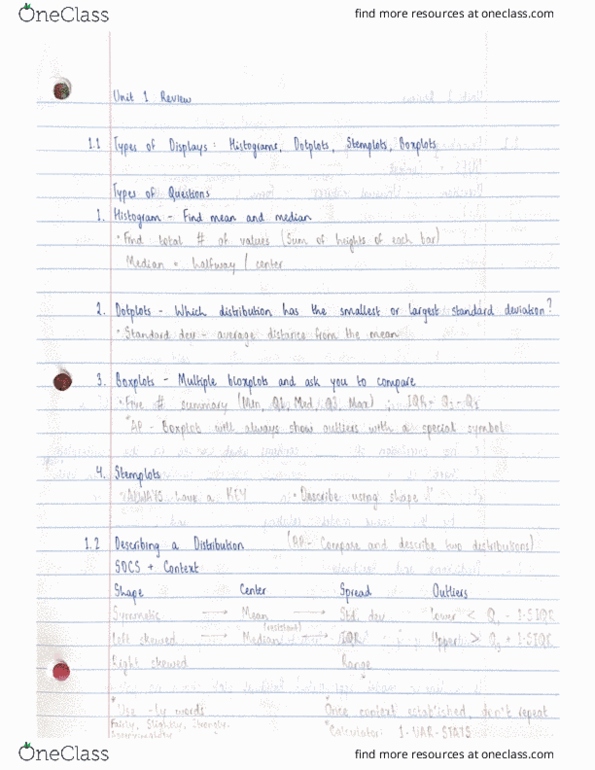 OneClass
find more resources at oneclass.com
Unit 1 Review
1.1 Types of Displays: Histograms, Dotplots, Stemplots, Boxplots
Types of Questions
1. Histogram - Find mean and median
• Find total # of values (Sum of heights of each bar)
Median = halfway / center
2. Dotplots - Which distribution has the smallest or largest standard deviation?
• Standard dev - average distance from the mean
3. Boxplots - Multiple bloxplots and ask you to compare
• Five # summary (Min, Q1, Med, Q3, Max) ; IQR = Q3 - Q1
*AP - Boxplot will always show outliers with a special symbol
4. Stemplots
*ALWAYS have a KEY • Describe using shape
1.2 Describing a Distribution (AP- Compare and describe two distributions)
SOCS + Context
Shape Center Spread Outliers
Symmetric → Mean → Std. dev Lower < Q1 - 1.5IQR
Left skewed → Median (resistant) → IQR Upper > Q3 + 1.5IQR
Right skewed Range
*Use -ly words *Once context established, don't repeat
Fairly, Slightly, Strongly, *Calculator: 1-VAR-STATS
OneClass
find more resources at oneclass.com